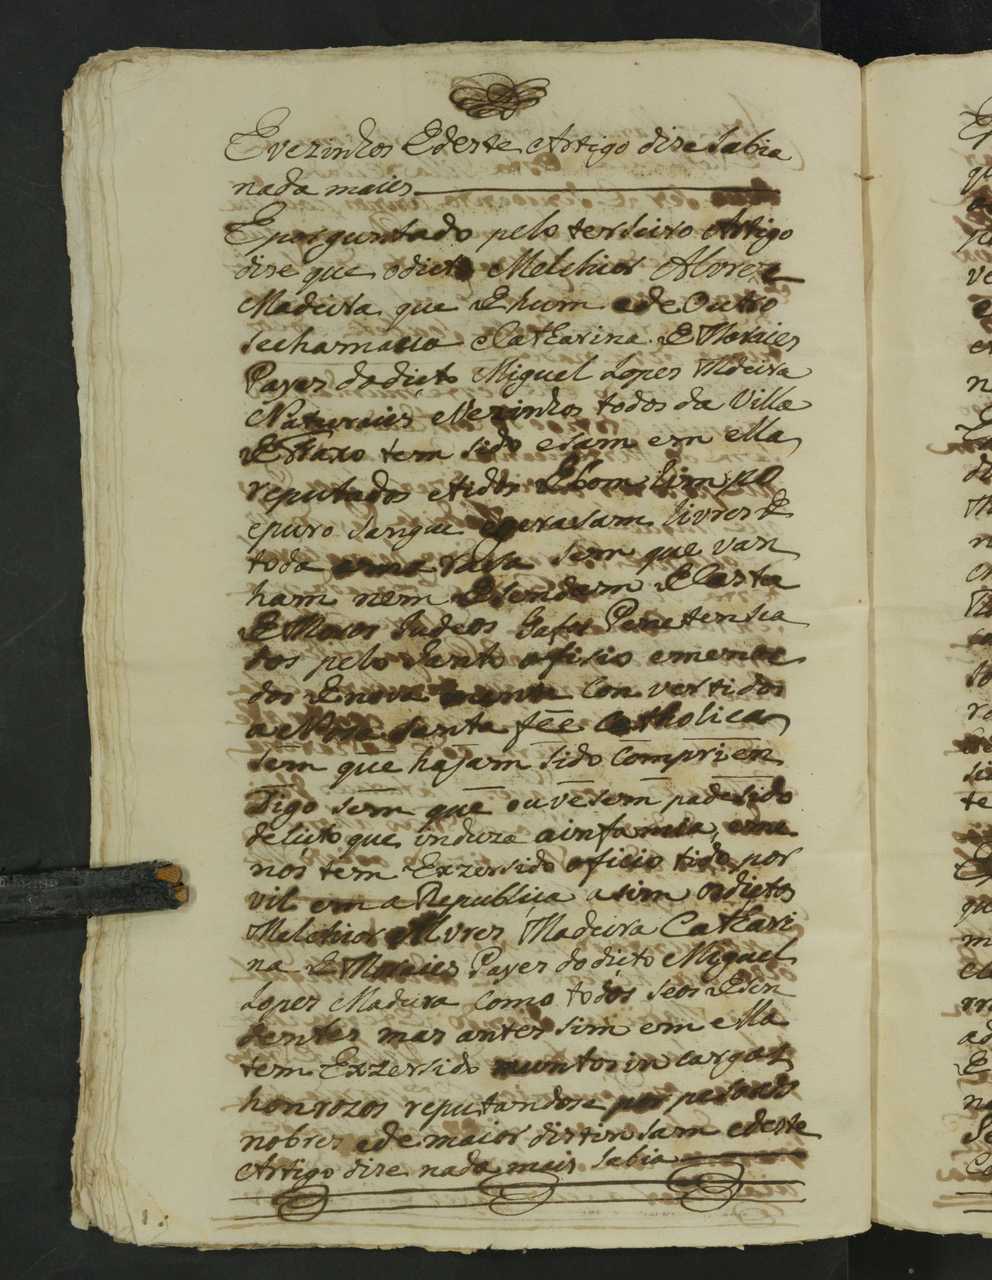 E vezinhos E deste Artigo dise Sabia
nada mais
E porguntado pelo terseiro Artigo
dise que o dicto Melchior Alvrez
Madeira que E hum e de Outro
se chamava Catharina E Moraies
Payes do dicto Miguel Lopes Madeira
Naturaies e Vezinhos todos da Villa
E tem sido e sam em ella
reputados e tidos E bom limpo
e puro sangue e sam livres E
toda rasa sem que van
ham nem Esendam E Casta
E Moros Judeos Penetensia
dos pelo Santo ofisio e menos
dos E nova mente Convertidos
a e Nosa Santa fée Catholica
sem que hajam sido Comprien
digo sem que ouvesem padesido
delicto que induza a infamia, e me
nos tem Exzersido oficio tido por
vil em a Republica asim os dictos
Melchior Alvrez Madeira Cathari
na E Moraies Payes do dicto Miguel
Lopez Madeira Como todos seos Esen
dentes mas antes sim em ella
tem Exzersido muntos in cargos
honrozos reputandose por pesoas
nobres e de maior distinsam e deste
Artigo dise nada mais Sabia